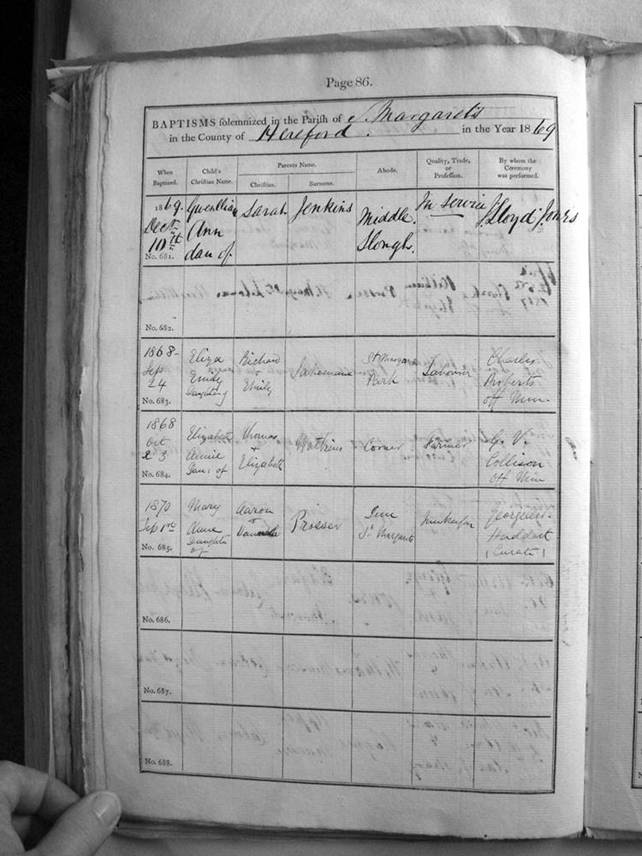 Page 86.
BAPTISMS solemnized in the Parish of St Margarets
in the County of Hereford. in the Year 1869
When Baptized.
Child's Christian Name.
Parents Name.
Christian.
Surname.
Abode.
Quality, Trade, or Profession.
By whom the Ceremony was performed.
1869.
Dect
10th
No. 681.
Gwenllian
Ann
dau of
Sarah
Jenkins
Middle
Slough.
In Service
Lloyd Jones
No. 682.
1868
Sep
24
No. 683.
Eliza
Emily
Richard
Emily
St Margarets
Park
Labourer
Charles
Roberts
off Min
1868
Oct
23
No. 684.
Elizabeth
Annie
Dau of
Thomas
+
Elizabeth
Watkins
Corner
Farmer
G. V.
Collison
off Min
1870
No. 685.
Mary
Anne
Daughter
of
Aaron
Prosser
St Margarets
George
Huddart
(Curate)
No. 686.
No. 687.
No. 688.